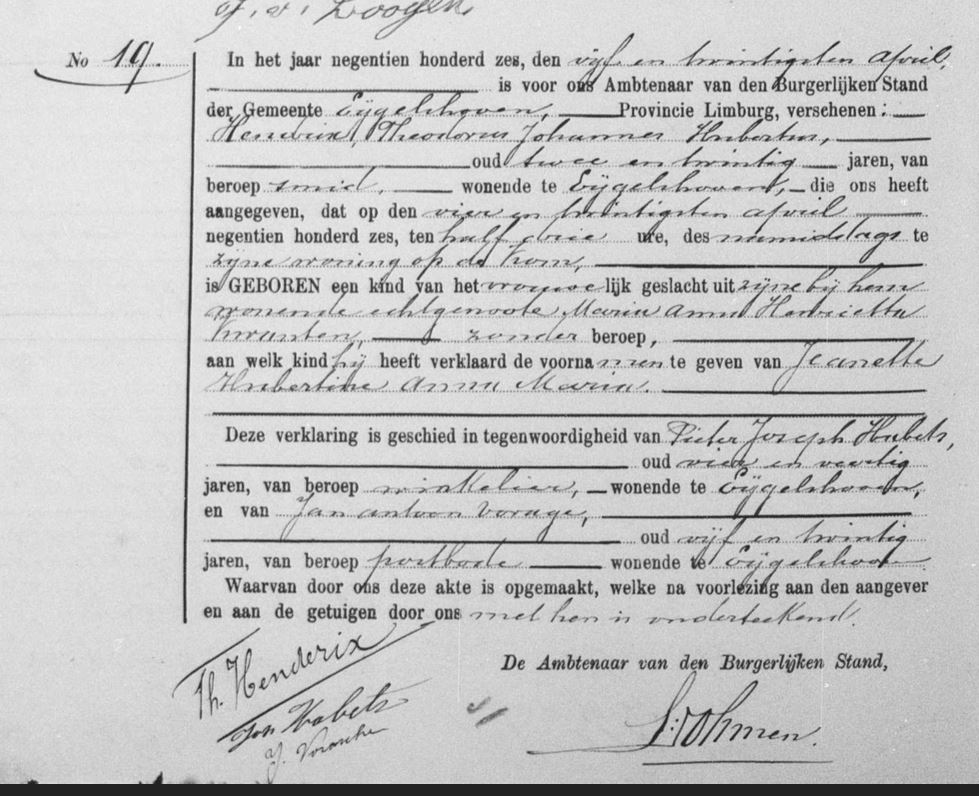 No 19.
In het jaar negentien honderd zes, den vijf en twintigsten april,
is voor ons Ambtenaar van den Burgerlijken Stand
der Gemeente Eijgelshoven, Provincie Limburg, verschenen:
Theodorus Johannes Hubertus,
oud twee en twintig jaren, van
beroep smid, wonende te Eijgelshoven, die ons heeft
aangegeven, dat op den vier en twintigsten april
negentien honderd zes, ten half drie ure, des namiddags te
zijne woning op de
is GEBOREN een kind van het vrouwelijk geslacht uit zijne bij hem
wonende echtgenoote Maria Anna
zonder beroep,
aan welk kind hij heeft verklaard de voornamen te geven van Jeanette
Hubertine Anna Maria.
Deze verklaring is geschied in tegenwoordigheid van Pieter Joseph Habets,
oud vier en veertig
jaren, van beroep winkelier, wonende te Eijgelshoven,
en van Jan Antoon Vorage,
oud vijf en twintig
jaren, van beroep postbode wonende te Eijgelshoven
Waarvan door ons deze akte is opgemaakt, welke na voorlezing aan den aangever
en aan de getuigen door ons met hen is onderteekend.
De Ambtenaar van den Burgerlijken Stand,
Th. Henderix
Jos Habets